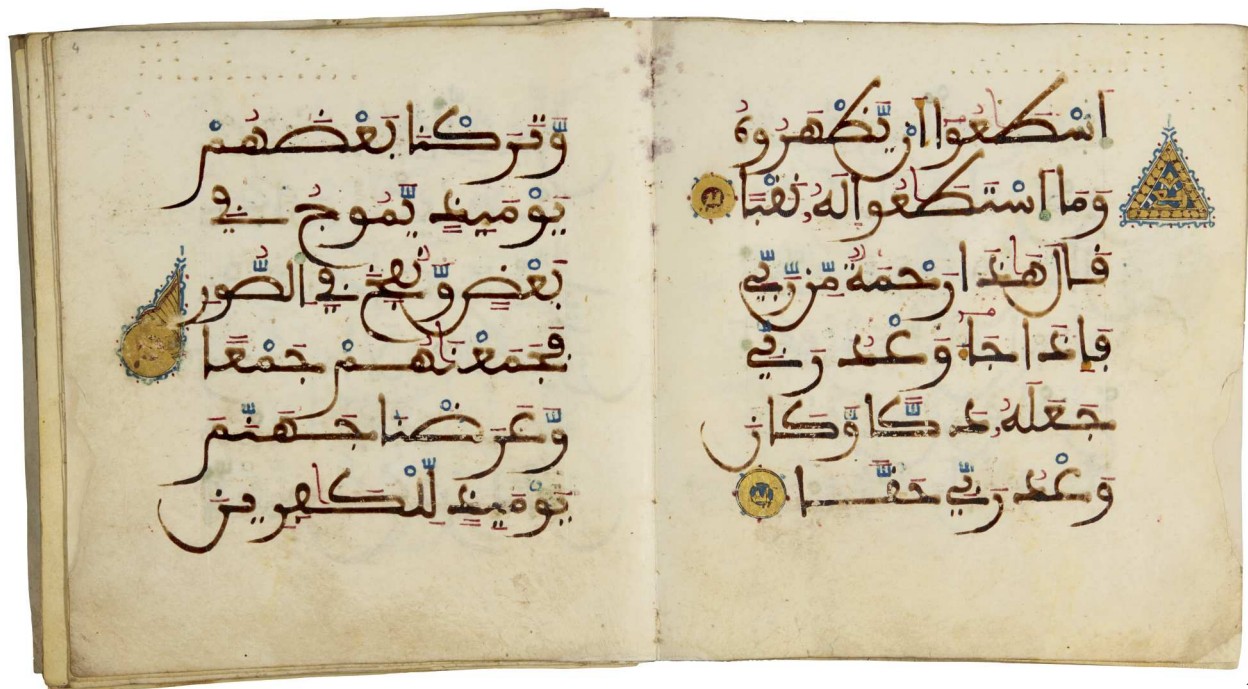 اسْطَٰعُوا أَنْ يَّظْهَرُوهُ
وَمَا اسْتَطَٰعُوا لَهُۥ نَقْبًا
قَالَ هَٰذَا رَحْمَةٌ مِّن رَّبِّي
فَإِذَا جَآءَ وَعْدُ رَبِّي
جَعَلَهُۥ دَكًّا وَّكَانَ
وَعْدُ رَبِّي حَقًّا
وَّتَرَكْنَا بَعْضَهُمْ
يَوْمَئِذٍ يَّمُوجُ فِي
بَعْضٍ وَّنُفِخَ فِي الصُّورِ
فَجَمَعْنَٰهُمْ جَمْعًا
وَّعَرَضْنَا جَهَنَّمَ
يَوْمَئِذٍ لِّلْكَٰفِرِينَ
4